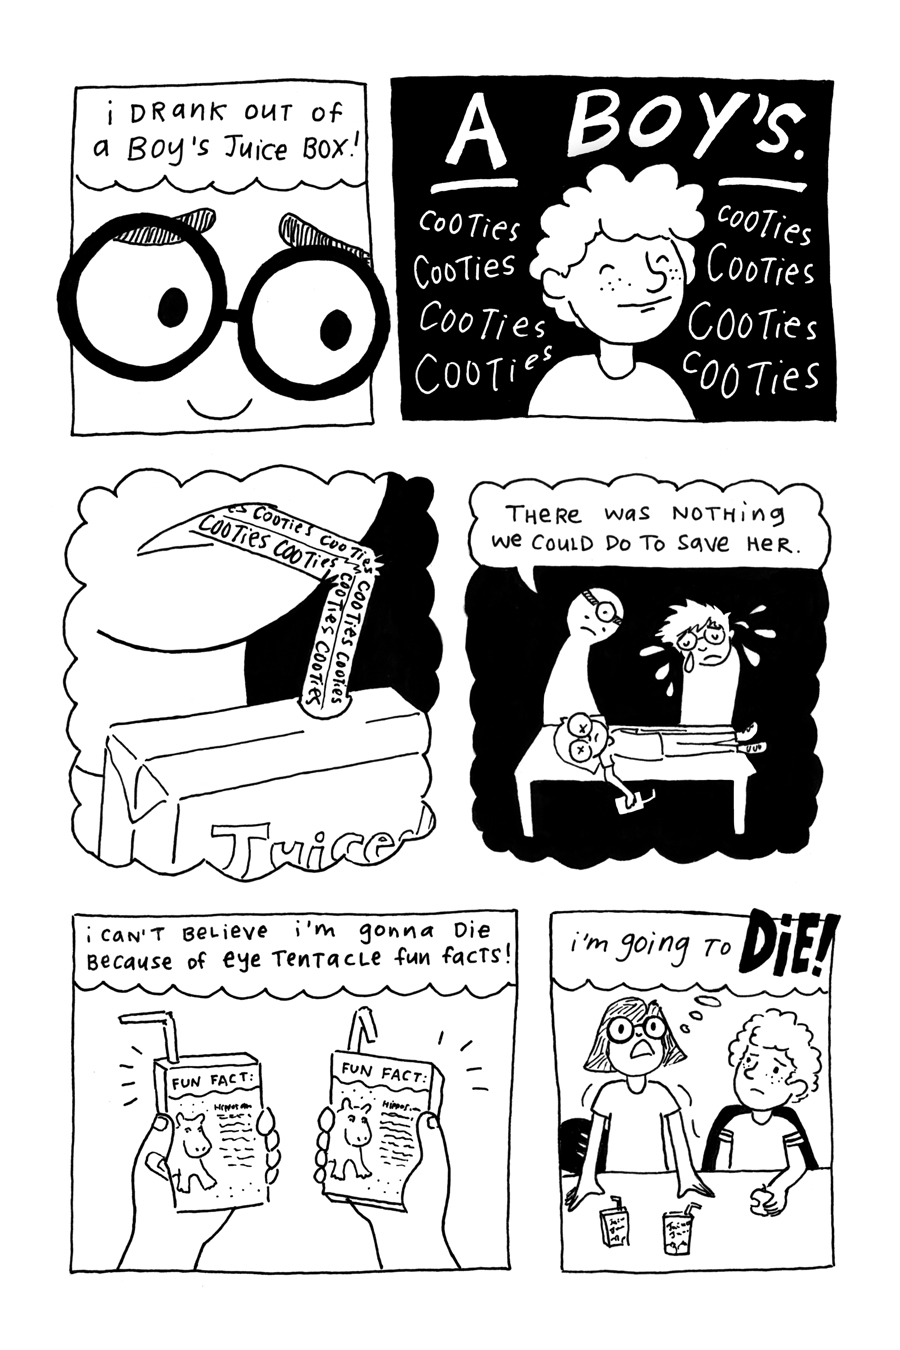 i DRANK OUT OF
a BOY'S JUICE BOX!
A BOY'S.
COOTIES
COOTIES
COOTIES
COOTIES
COOTIES
COOTIES
COOTIES
COOTIES
ES COOTIES COOTIES
COOTIES COOTIES
COOTIES COOTIES
COOTIES COOTIES
Juice
THERE WAS NOTHING
WE COULD DO TO SAVE HER.
i CAN'T BELIEVE i'm gonna DIE
BECAUSE OF EYE TENTACLE fun facts!
FUN FACT:
FUN FACT:
i'm going TO DiE!